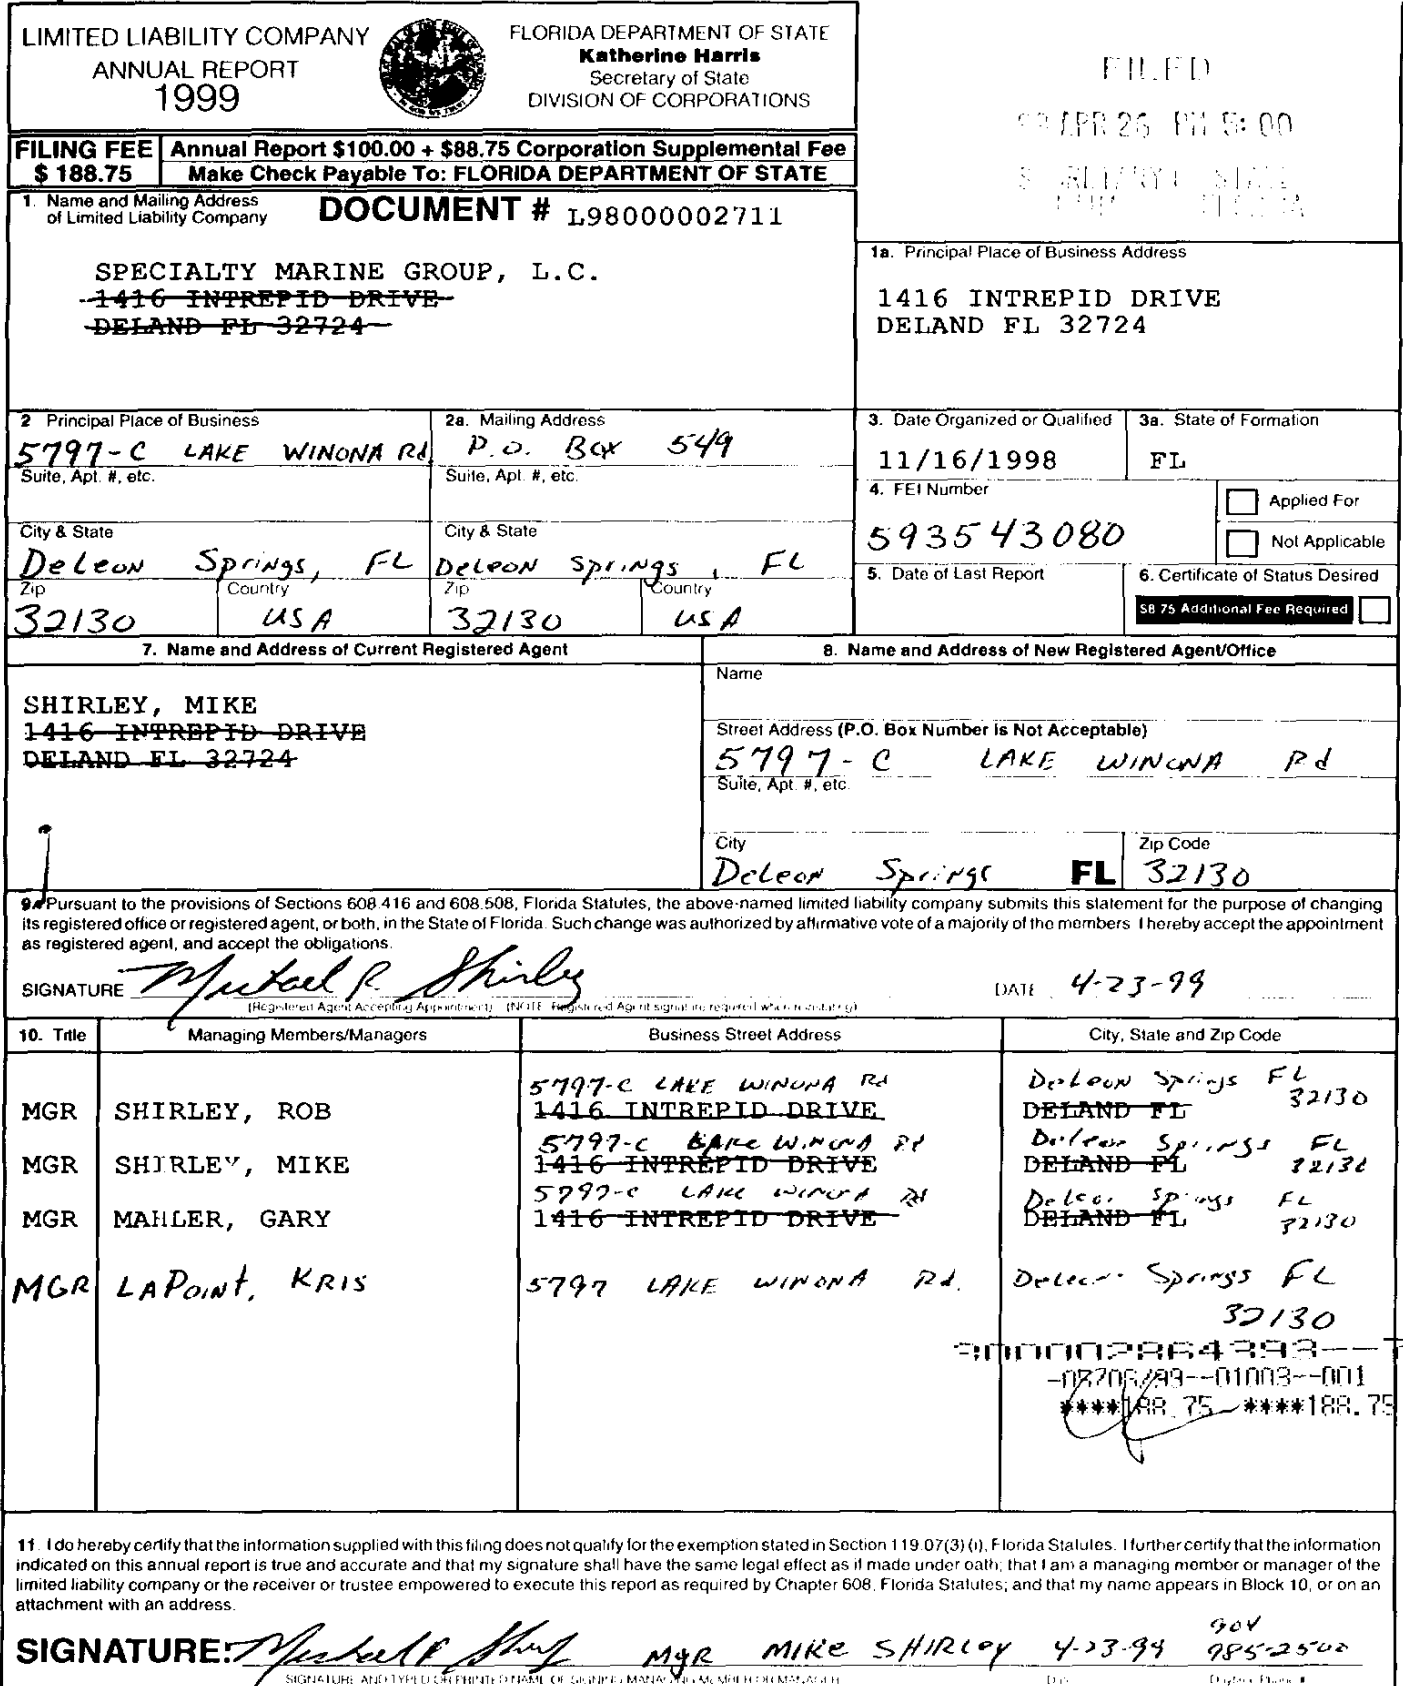 LIMITED LIABILITY COMPANY
ANNUAL REPORT
1999
FLORIDA DEPARTMENT OF STATE
Katherine Harris
Secretary of State
DIVISION OF CORPORATIONS
FILED
APR 26 PM 5:00
FILING FEE
$ 188.75
Annual Report $100.00 + $88.75 Corporation Supplemental Fee
Make Check Payable To: FLORIDA DEPARTMENT OF STATE
1. Name and Mailing Address
of Limited Liability Company
DOCUMENT # L98000002711
SPECIALTY MARINE GROUP, L.C.
1416 INTREPID DRIVE
DELAND FL 32724
1a. Principal Place of Business Address
1416 INTREPID DRIVE
DELAND FL 32724
2 Principal Place of Business
5797-C LAKE WINONA Rd
Suite, Apt. #, etc.
City & State
DeLeon Springs, FL
Zip
32130
Country
USA
2a. Mailing Address
P.O. Box 549
Suite, Apt. #, etc.
City & State
DeLeon Springs, FL
Zip
32130
Country
USA
3. Date Organized or Qualified
11/16/1998
3a. State of Formation
FL
4. FEI Number
593543080
Applied For
Not Applicable
5. Date of Last Report
6. Certificate of Status Desired
$8.75 Additional Fee Required
7. Name and Address of Current Registered Agent
SHIRLEY, MIKE
1416 INTREPID DRIVE
DELAND FL 32724
8. Name and Address of New Registered Agent/Office
Name
Street Address (P.O. Box Number is Not Acceptable)
5797-C LAKE WINONA Rd
Suite, Apt. #, etc.
City
DeLeon Springs FL
Zip Code
32130
9. Pursuant to the provisions of Sections 608.416 and 608.508, Florida Statutes, the above-named limited liability company submits this statement for the purpose of changing
its registered office or registered agent, or both, in the State of Florida. Such change was authorized by affirmative vote of a majority of the members. I hereby accept the appointment
as registered agent, and accept the obligations.
SIGNATURE Michael R Shirley
DATE 4-23-99
(Registered Agent Accepting Appointment) (NOTE: Registered Agent signature required when reinstating)
10. Title
Managing Members/Managers
Business Street Address
City, State and Zip Code
5797-C LAKE WINONA Rd DeLeon Springs FL 32130
MGR SHIRLEY, ROB 1416 INTREPID DRIVE DELAND FL
5797-C LAKE WINONA Rd DeLeon Springs FL 32130
MGR SHIRLEY, MIKE 1416 INTREPID DRIVE DELAND FL
5797-C LAKE WINONA Rd DeLeon Springs FL 32130
MGR MAHLER, GARY 1416 INTREPID DRIVE DELAND FL
MGR LAPOINT, KRIS 5797 LAKE WINONA Rd. DeLeon Springs FL
32130
--01003--001
****188.75 ****188.75
11. I do hereby certify that the information supplied with this filing does not qualify for the exemption stated in Section 119.07(3)(i), Florida Statutes. I further certify that the information
indicated on this annual report is true and accurate and that my signature shall have the same legal effect as if made under oath; that I am a managing member or manager of the
limited liability company or the receiver or trustee empowered to execute this report as required by Chapter 608, Florida Statutes; and that my name appears in Block 10, or on an
attachment with an address.
904
SIGNATURE: Michael R Shirley MgR MIKE SHIRLEY 4-23-99 985-2500
SIGNATURE AND TYPED OR PRINTED NAME OF SIGNING MANAGING MEMBER OR MANAGER Date Daytime Phone #